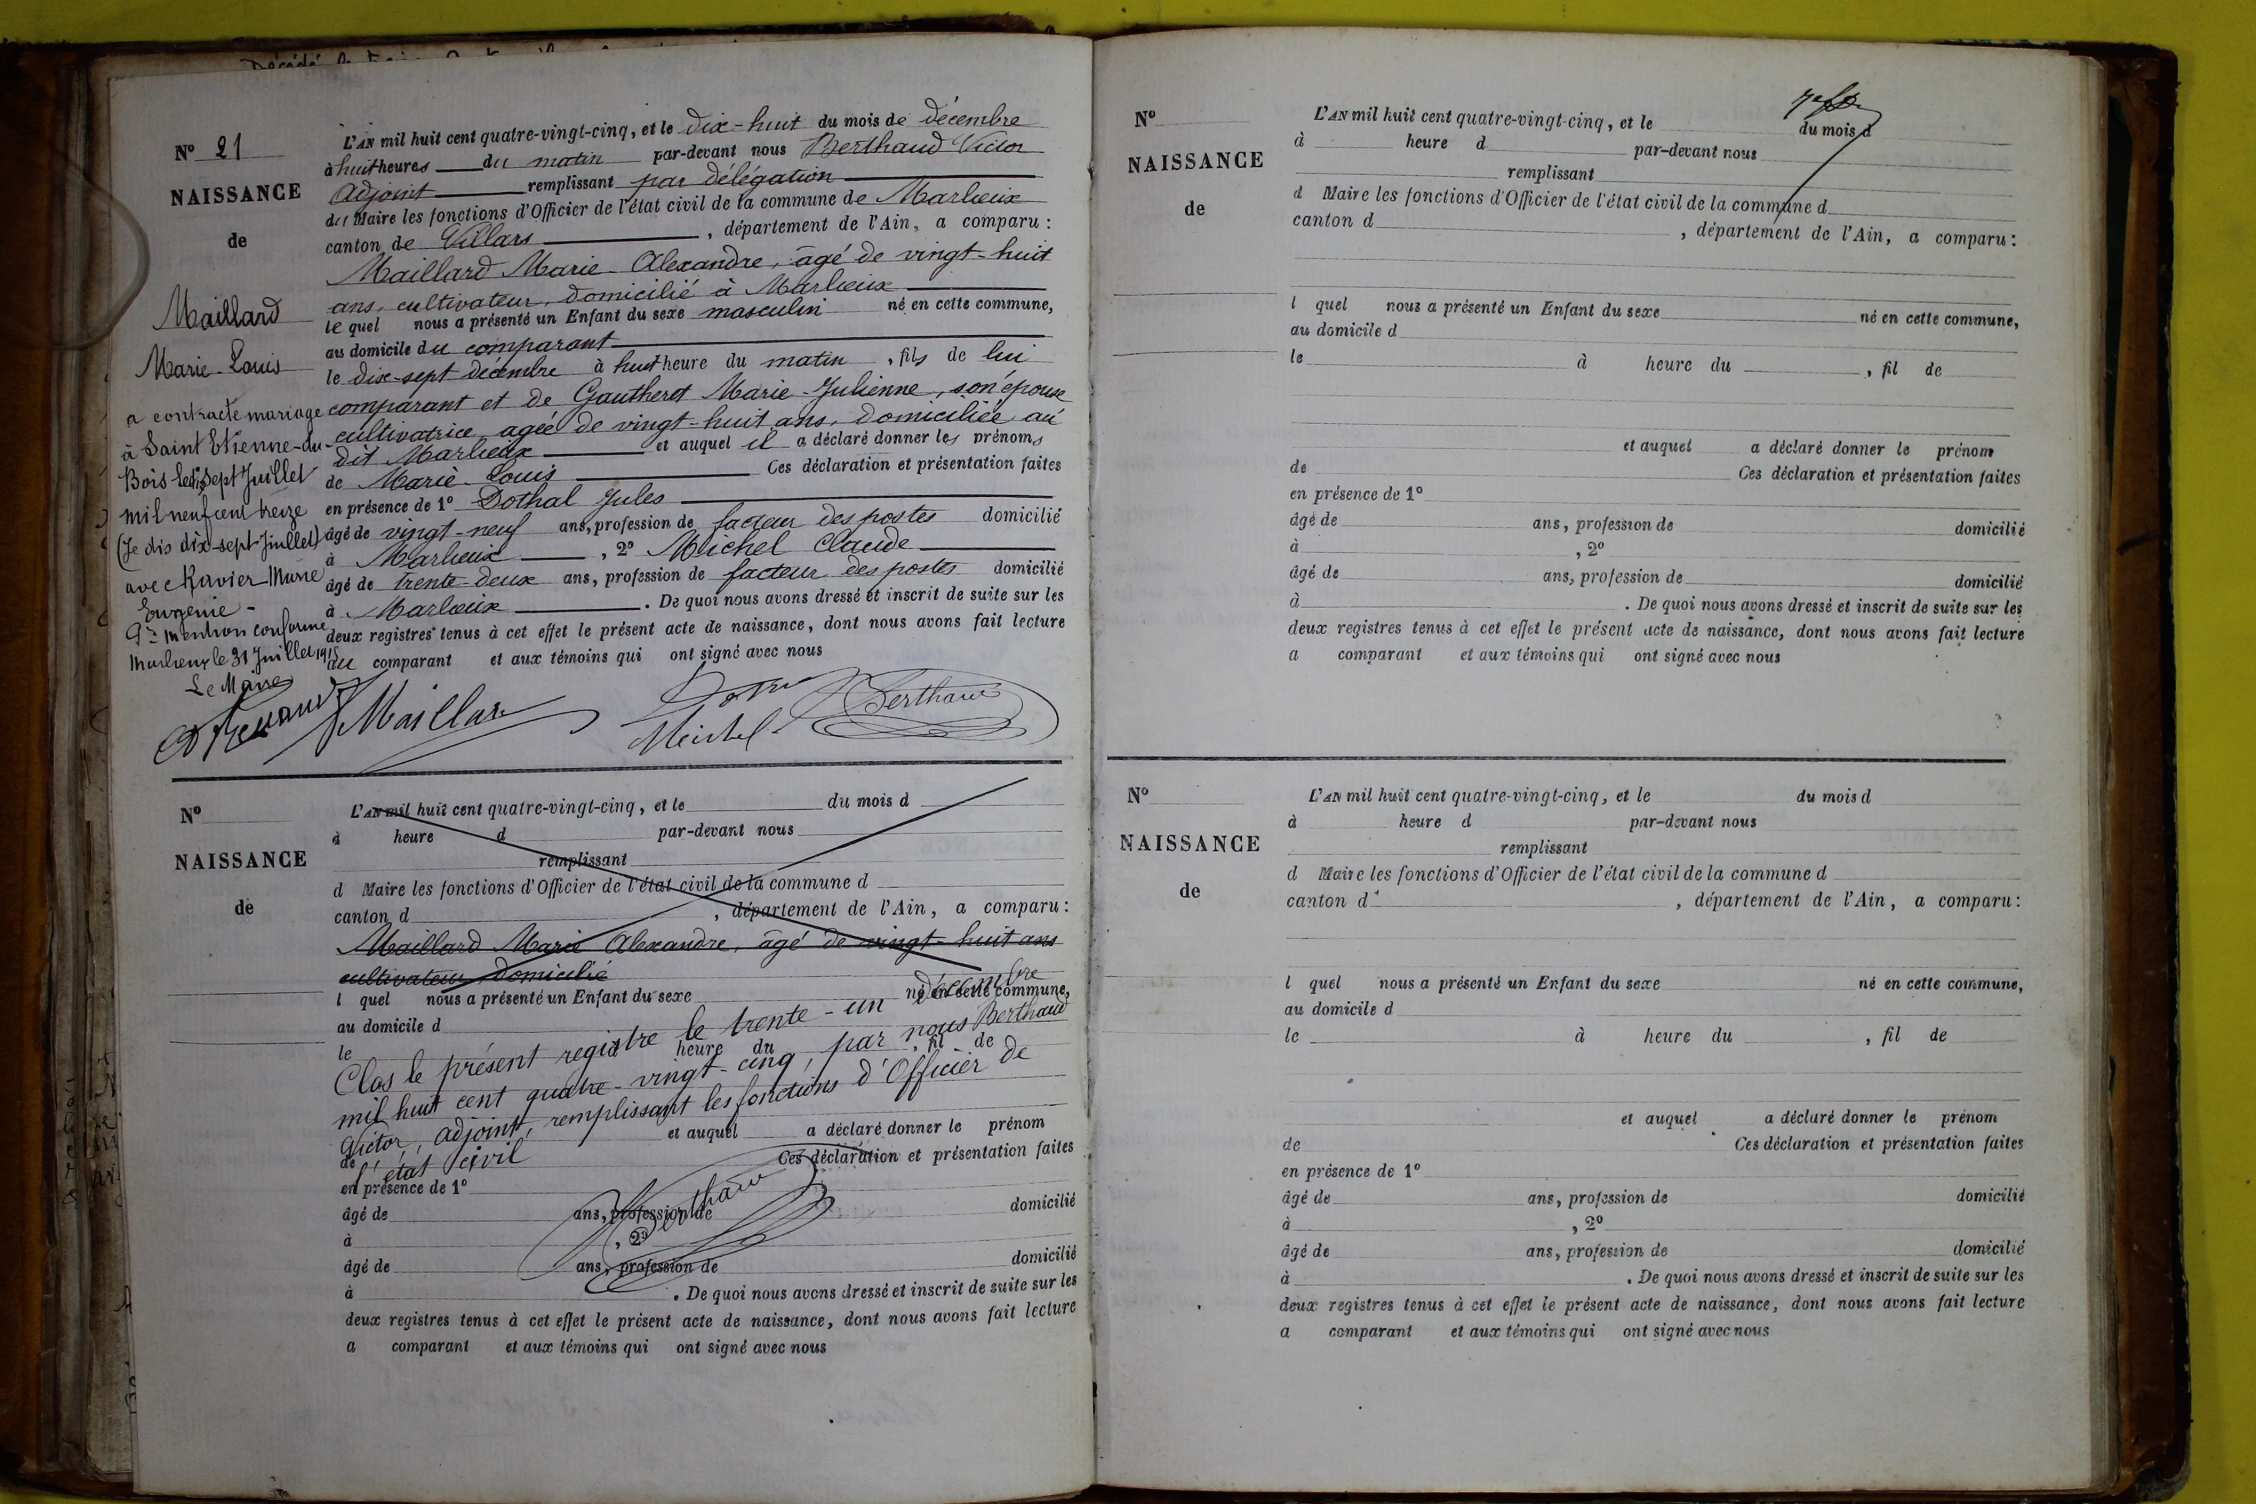 Nº 21
NAISSANCE
de
Maillard
Marie-Louis
a contracté mariage
à Saint Etienne-du-
Bois le dix sept Juillet
mil neuf cent treize
(Je dis dix-sept Juillet)
avec Ravier Marie
Eugénie -
Pr mention conforme
Marlieux le 31 Juillet 1913
Le Maire
L'AN mil huit cent quatre-vingt-cinq, et le dix-huit du mois de décembre
à huit heures du matin par-devant nous Berthaud Victor
adjoint remplissant par délégation
du Maire les fonctions d'Officier de l'état civil de la commune de Marlieux
canton de Villars, département de l'Ain, a comparu :
Maillard Marie-Alexandre, âgé de vingt-huit
ans, cultivateur, domicilié à Marlieux
le quel nous a présenté un Enfant du sexe masculin né en cette commune,
au domicile du comparant
le dix-sept décembre à huit heure du matin, fils de lui
comparant et de Gautheret Marie-Julienne, son épouse
cultivatrice, agée de vingt-huit ans, domiciliée au
dit Marlieux et auquel il a déclaré donner les prénoms
de Marie-Louis Ces déclaration et présentation faites
en présence de 1º Dothal Jules
âgé de vingt-neuf ans, profession de facteur des postes domicilié
à Marlieux, 2º Michel Claude
âgé de trente-deux ans, profession de facteur des postes domicilié
à Marlieux. De quoi nous avons dressé et inscrit de suite sur les
deux registres tenus à cet effet le présent acte de naissance, dont nous avons fait lecture
au comparant et aux témoins qui ont signé avec nous
Maillard
Michel
Berthaud
Nº
NAISSANCE
de
L'AN mil huit cent quatre-vingt-cinq, et le du mois d
à heure d par-devant nous
remplissant
d Maire les fonctions d'Officier de l'état civil de la commune d
canton d, département de l'Ain, a comparu :
Maillard Marie Alexandre, âgé de vingt-huit ans
cultivateur, domicilié
l quel nous a présenté un Enfant du sexe né en cette commune,
au domicile d
le à heure du, fil de
Clos le présent registre le trente-un Décembre
mil huit cent quatre-vingt-cinq, par nous Berthaud
Victor, adjoint, remplissant les fonctions d'Officier de
l'état civil
et auquel a déclaré donner le prénom
de Ces déclaration et présentation faites
en présence de 1º
âgé de ans, profession de domicilié
à, 2º
âgé de ans, profession de domicilié
à. De quoi nous avons dressé et inscrit de suite sur les
deux registres tenus à cet effet le présent acte de naissance, dont nous avons fait lecture
a comparant et aux témoins qui ont signé avec nous
Berthaud
Nº
NAISSANCE
de
L'AN mil huit cent quatre-vingt-cinq, et le du mois d
à heure d par-devant nous
remplissant
d Maire les fonctions d'Officier de l'état civil de la commune d
canton d, département de l'Ain, a comparu :
l quel nous a présenté un Enfant du sexe né en cette commune,
au domicile d
le à heure du, fil de
et auquel a déclaré donner le prénom
de Ces déclaration et présentation faites
en présence de 1º
âgé de ans, profession de domicilié
à, 2º
âgé de ans, profession de domicilié
à. De quoi nous avons dressé et inscrit de suite sur les
deux registres tenus à cet effet le présent acte de naissance, dont nous avons fait lecture
a comparant et aux témoins qui ont signé avec nous
Nº
NAISSANCE
de
L'AN mil huit cent quatre-vingt-cinq, et le du mois d
à heure d par-devant nous
remplissant
d Maire les fonctions d'Officier de l'état civil de la commune d
canton d, département de l'Ain, a comparu :
l quel nous a présenté un Enfant du sexe né en cette commune,
au domicile d
le à heure du, fil de
et auquel a déclaré donner le prénom
de Ces déclaration et présentation faites
en présence de 1º
âgé de ans, profession de domicilié
à, 2º
âgé de ans, profession de domicilié
à. De quoi nous avons dressé et inscrit de suite sur les
deux registres tenus à cet effet le présent acte de naissance, dont nous avons fait lecture
a comparant et aux témoins qui ont signé avec nous